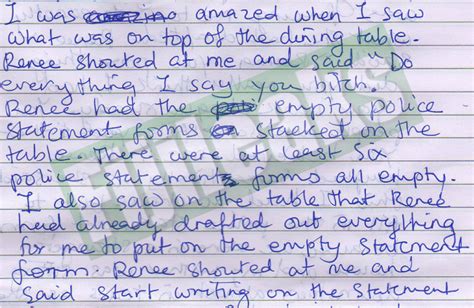 I was amazed when I saw
what was on top of the dining table.
Renee shouted at me and said "Do
everything I say you bitch.
Renee had the empty police
statement forms stacked on the
table. There were at least six
police statements forms all empty.
I also saw on the table that Renee
had already drafted out everything
for me to put on the empty statement
form. Renee shouted at me and
said start writing on the statement